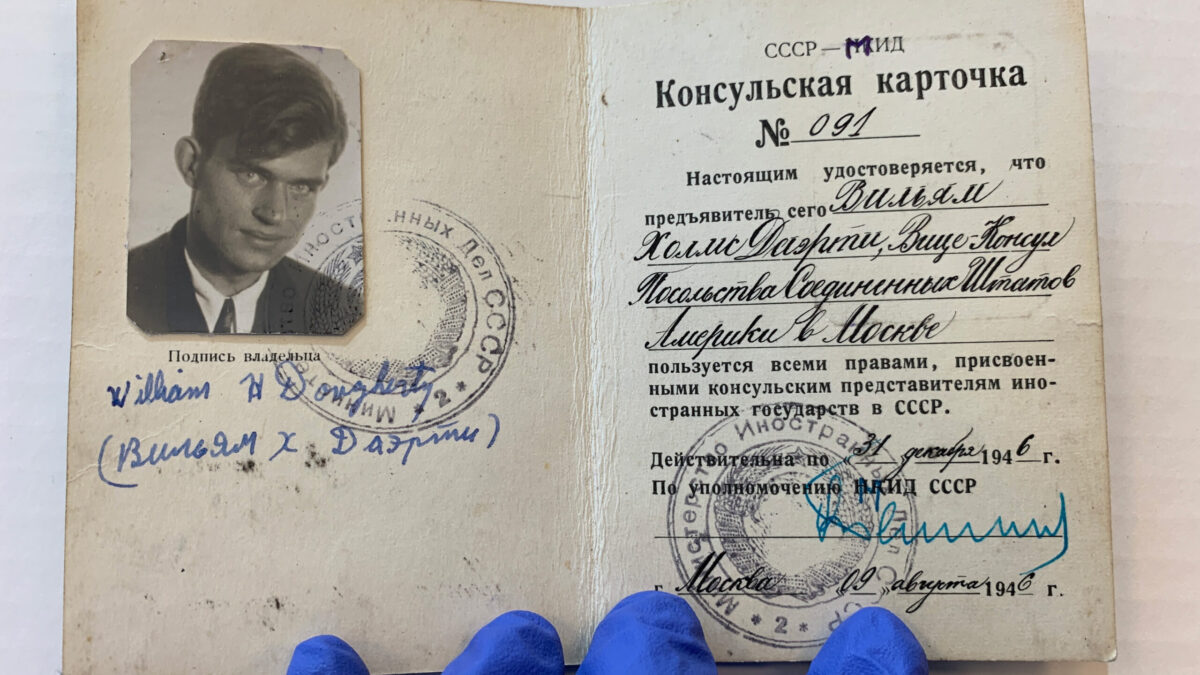 Подпись владельца
William H Dougherty
(Вильям Х Даэрти)
Министерство Иностранных Дел СССР * 2 *
СССР — МИД
Консульская карточка
№ 091
Настоящим удостоверяется, что
предъявитель сего Вильям
Холлис Даэрти, Вице-Консул
Посольства Соединенных Штатов
Америки в Москве
пользуется всеми правами, присвоен-
ными консульским представителям ино-
странных государств в СССР.
Действительна по «31» декабря 1946 г.
По уполномочению МИД СССР
г. Москва «09» августа 1946 г.
Министерство Иностранных Дел СССР * 2 *